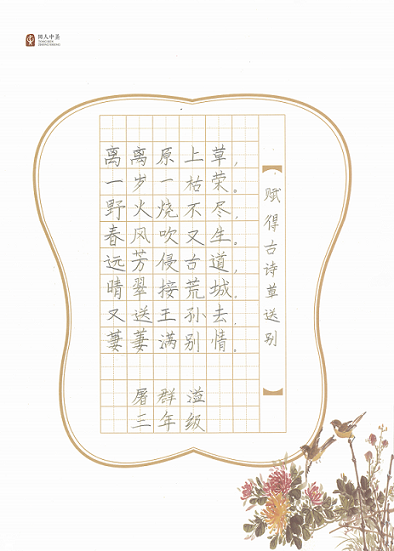 【赋得古诗送别】
离离原上草,
一岁一枯荣。
野火烧不尽,
春风吹又生。
远芳侵古道,
晴翠接荒城。
又送王孙去,
萋萋满别情。
屠群溢
三年级